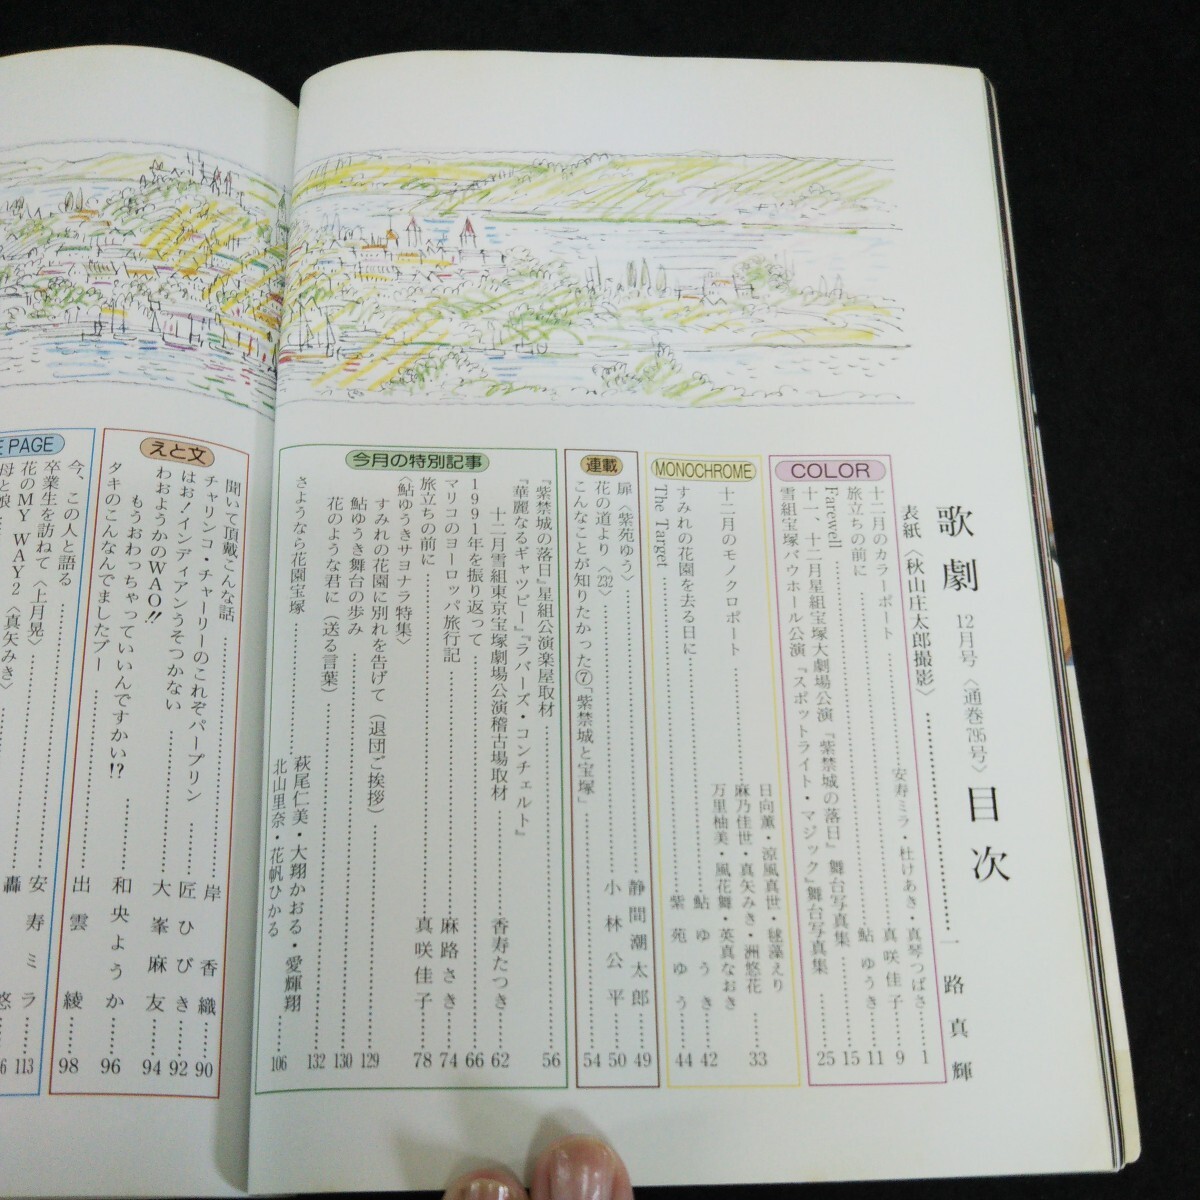 歌劇 12月号〈通巻795号〉目次
表紙〈秋山庄太郎撮影〉……一路真輝
COLOR
十二月のカラーポート……安寿ミラ・杜けあき・真琴つばさ…1
旅立ちの前に……真咲佳子…9
Farewell……鮎ゆうき…11
十一、十二月星組宝塚大劇場公演『紫禁城の落日』舞台写真集…15
雪組宝塚バウホール公演『スポットライト・マジック』舞台写真集…25
MONOCHROME
十二月のモノクロポート……日向薫・涼風真世・毬藻えり
麻乃佳世・真矢みき・洲悠花
万里柚美・風花舞・英真なおき…33
すみれの花園を去る日に……鮎ゆうき…42
The Target……紫苑ゆう…44
連載
扉〈紫苑ゆう〉……静間潮太郎…49
花の道より〈232〉……小林公平…50
こんなことが知りたかった⑦「紫禁城と宝塚」……54
今月の特別記事
『紫禁城の落日』星組公演楽屋取材……56
『華麗なるギャツビー』『ラバーズ・コンチェルト』
十二月雪組東京宝塚劇場公演稽古場取材……香寿たつき…62
1991年を振り返って……66
マリコのヨーロッパ旅行記……麻路さき…74
旅立ちの前に……真咲佳子…78
〈鮎ゆうきサヨナラ特集〉
すみれの花園に別れを告げて（退団ご挨拶）……129
鮎ゆうき舞台の歩み……130
花のような君に（送る言葉）……132
さようなら花園宝塚……萩尾仁美・大翔かおる・愛輝翔
北山里奈・花帆ひかる…106
えと文
聞いて頂戴こんな話……岸香織…90
チャリンコ・チャーリーのこれぞパープリン……匠ひびき…92
はお！インディアンうそつかない……大峯麻友…94
わおようかのWAO!!
もうおわっちゃっていいんですかい!?……和央ようか…96
タキのこんなんでましたブー……出雲綾…98
E PAGE
今、この人と語る……安寿ミラ…113
卒業生を訪ねて〈上月晃〉……轟悠
花のMY WAY2〈真矢みき〉
母と娘